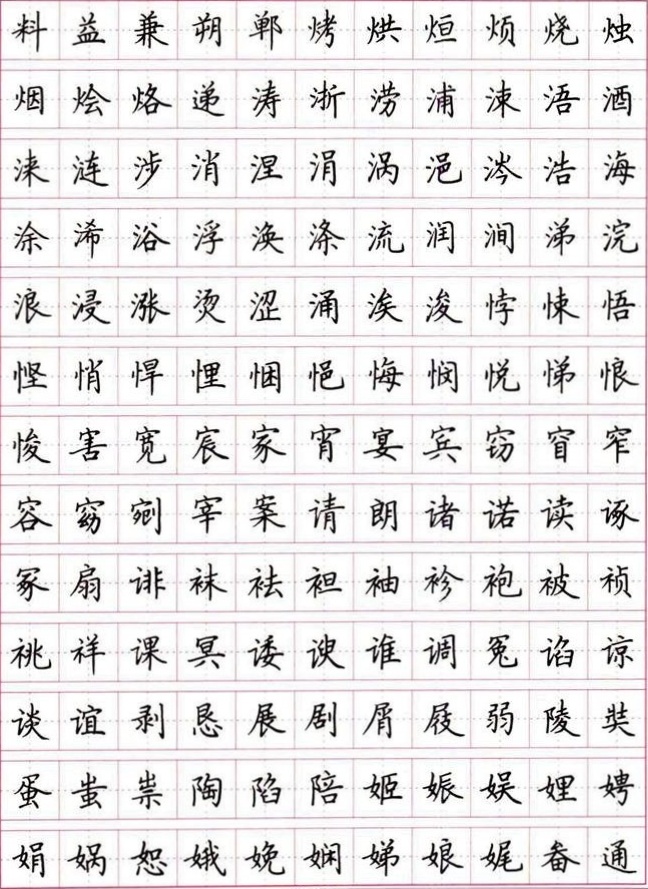 料益兼朔郸烤烘烜烦烧烛
烟烩烙递涛浙涝浦涑浯酒
涞涟涉消涅涓涡浥涔浩海
涂浠浴浮涣涤流润涧涕浣
浪浸涨烫涩涌涘浚悖悚悟
悭悄悍悝悃悒悔悯悦悌悢
悛害宽宸家宵宴宾窃窅窄
容窈剜宰案请朗诸诺读诼
冢扇诽袜祛袒袖袗袍被祯
祧祥课冥诿谀谁调冤谄谅
谈谊剥恳展剧屑屐弱陵奘
蛋蚩祟陶陷陪姬娠娱娌娉
娟娲恕娥娩娴娣娘娓畚通